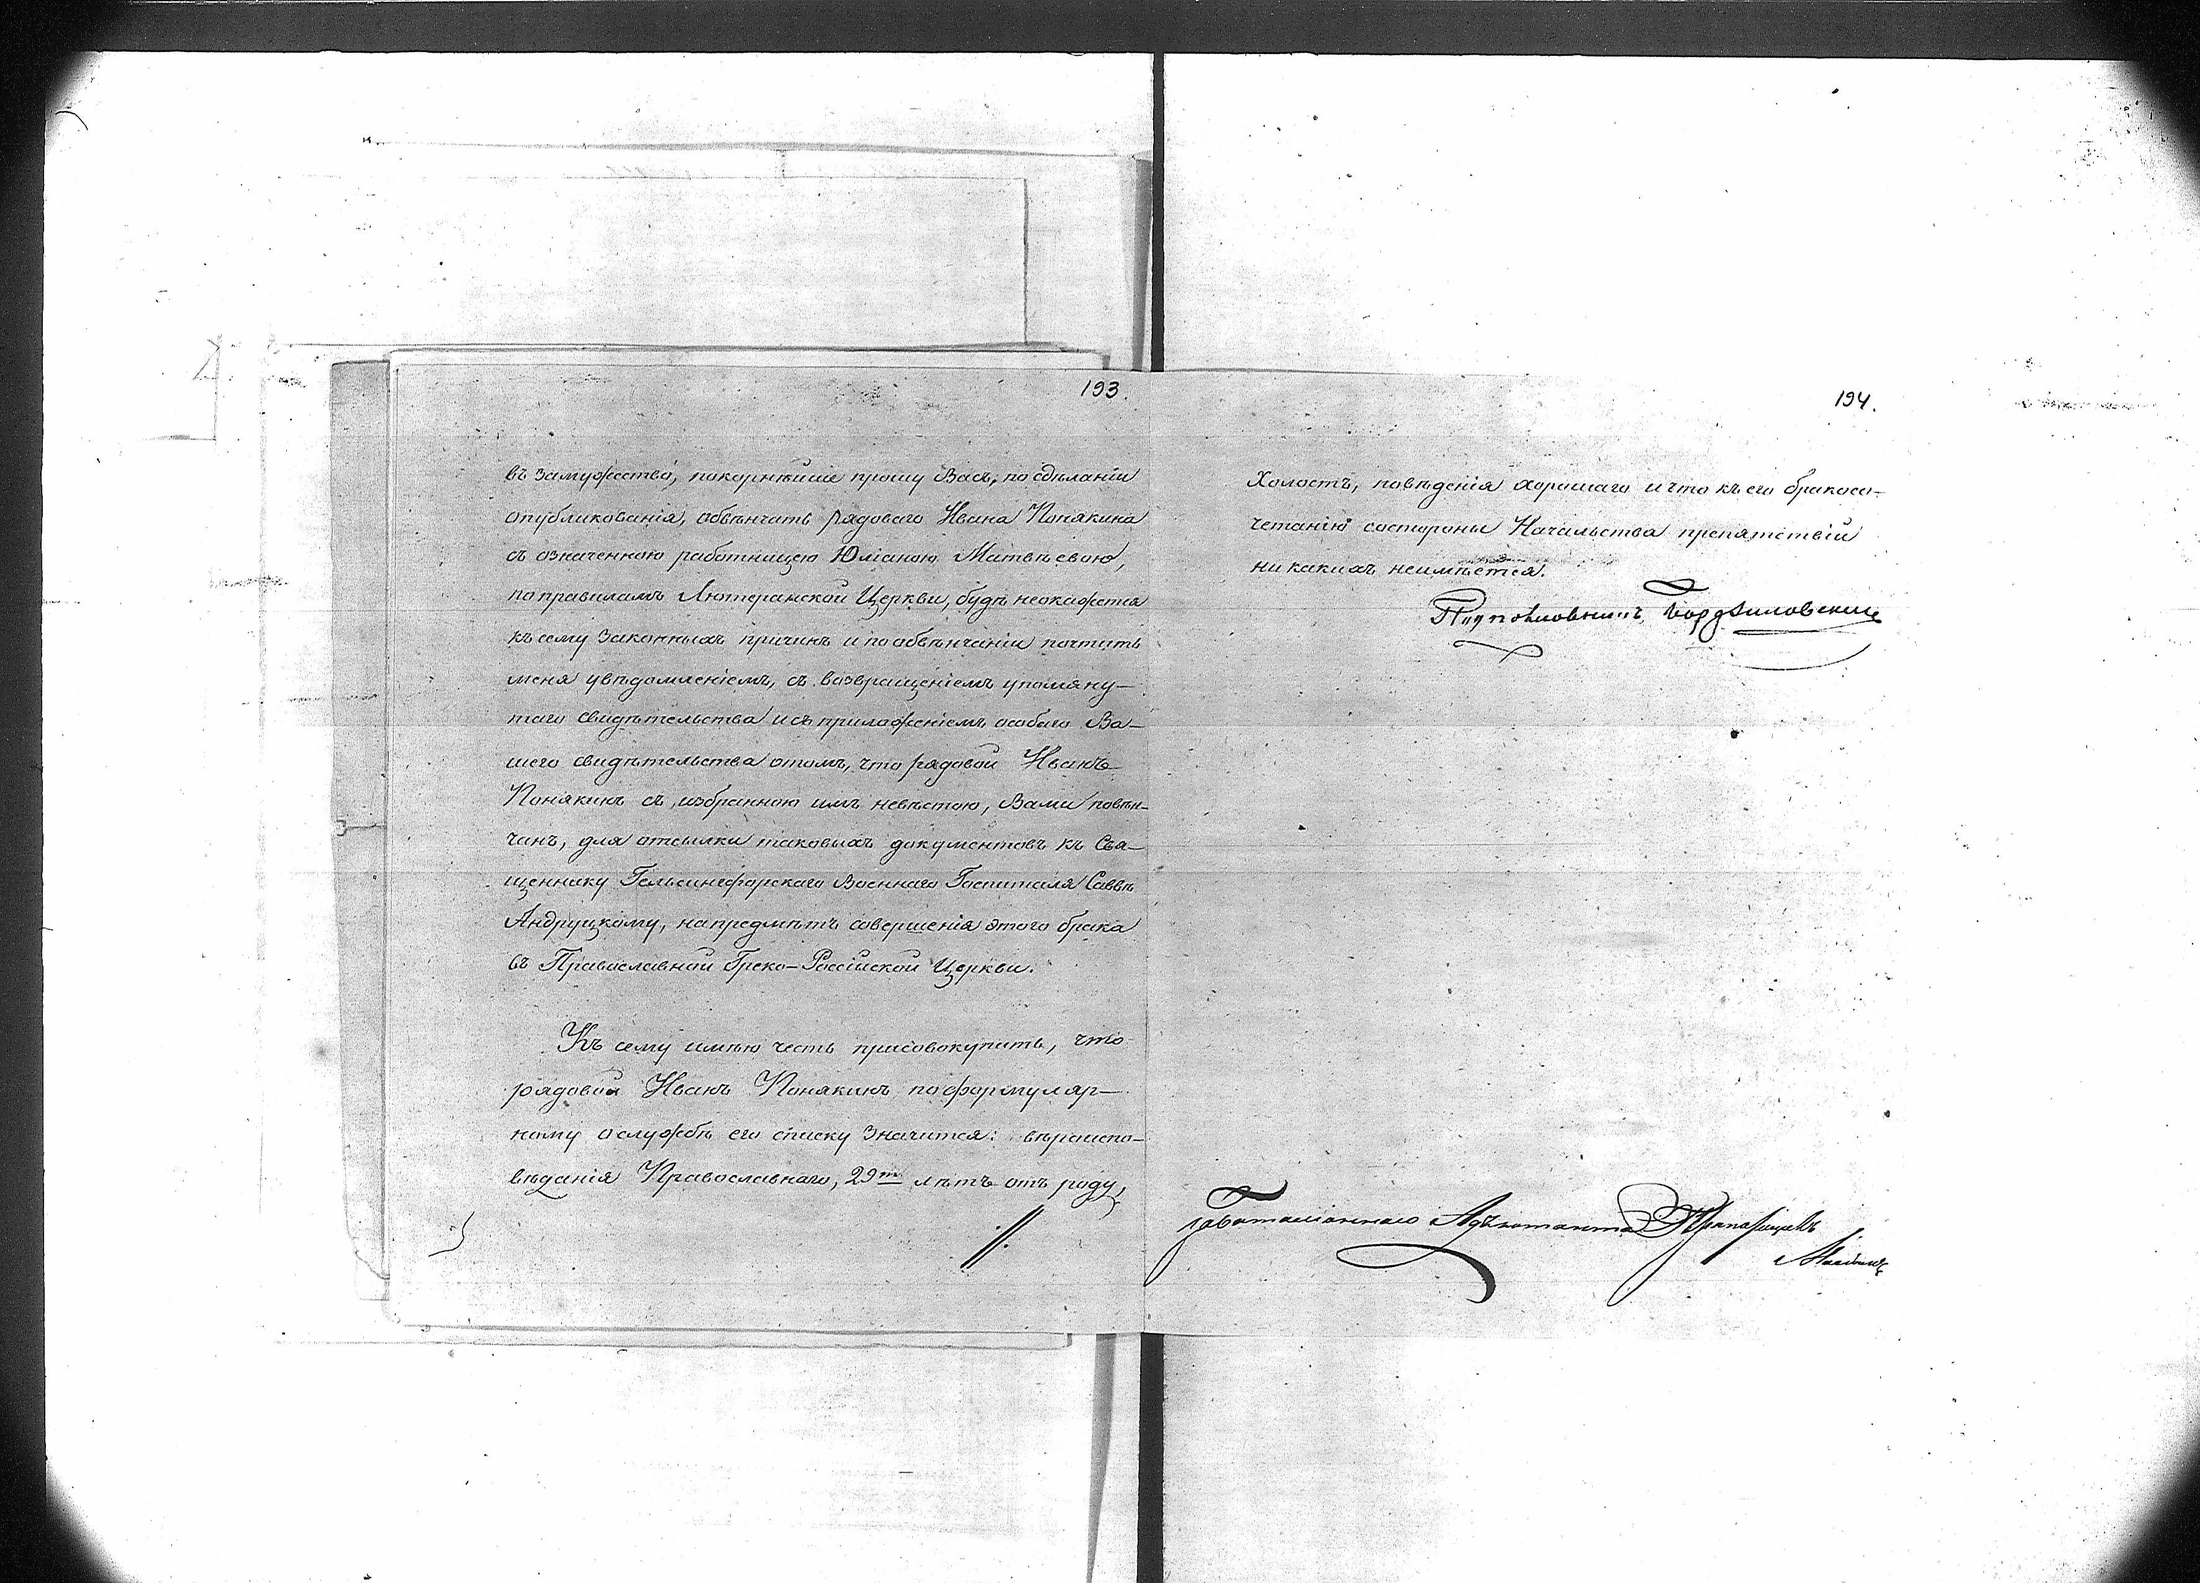 193.
въ замужество, покорнѣйше прошу Васъ, по сдѣланіи
опубликованія, обвѣнчать рядоваго Ивана Понякина
съ означенною работницею Юліаною Матвѣевою,
по правиламъ Лютеранской Церкви, будѣ неокажется
къ сему законныхъ причинъ и по обвѣнчаніи почтить
меня увѣдомленіемъ, съ возвращеніемъ упомяну-
таго свидѣтельства и съ приложеніемъ особаго Ва-
шего свидѣтельства отомъ, что рядовой Иванъ
Понякинъ съ избранною имъ невѣстою, Вами повѣн-
чанъ, для отсылки таковыхъ документовъ къ Свя-
щеннику Гельсингфорскаго Военнаго Госпиталя Саввѣ
Андруцкому, на предмѣтъ совершенія этого брака
въ Православной Греко-Россійской Церкви.
Къ сему имѣю честь присовокупить, что
рядовой Иванъ Понякинъ по формуляр-
ному ослужбѣ его списку значится: вѣроиспо-
вѣданія Православнаго, 29ти лѣтъ отъ роду,
194.
холостъ, повѣденія хорошаго и что къ его бракосо-
четанію состороны Начальства препятствій
никакихъ неимѣется.
Подполковникъ
За баталіоннаго Адъютанта Прапорщикъ